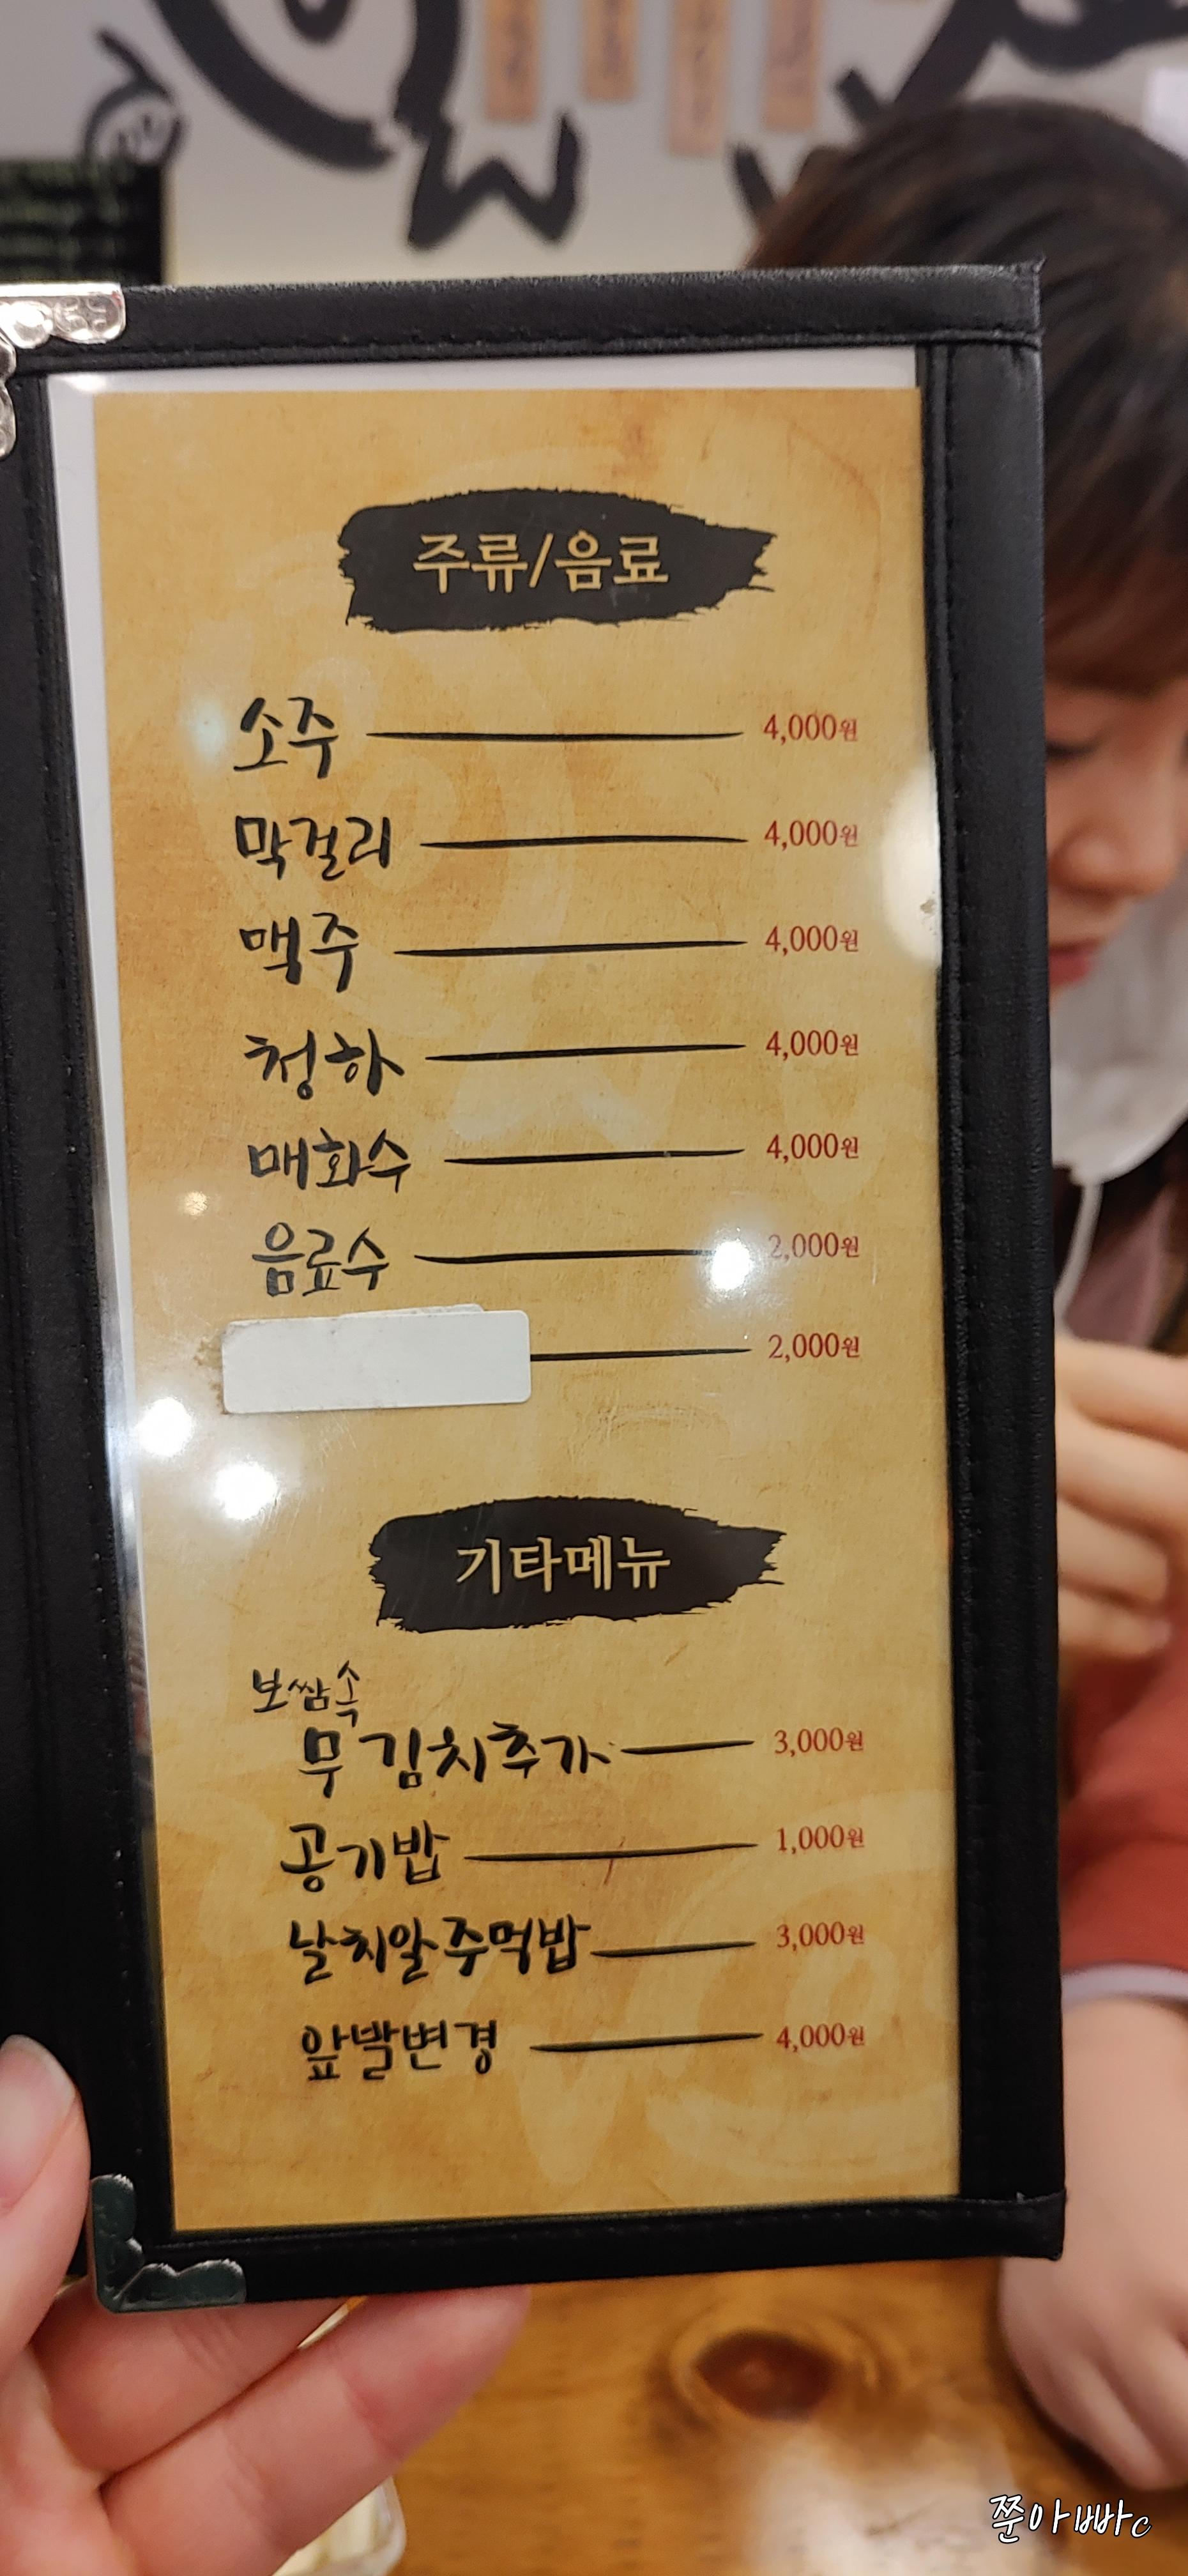 주류/음료
소주 4,000원
막걸리 4,000원
맥주 4,000원
청하 4,000원
매화수 4,000원
음료수 2,000원
2,000원
기타메뉴
보쌈속
무김치추가 3,000원
공기밥 1,000원
날치알주먹밥 3,000원
앞발변경 4,000원
쭌아빠c